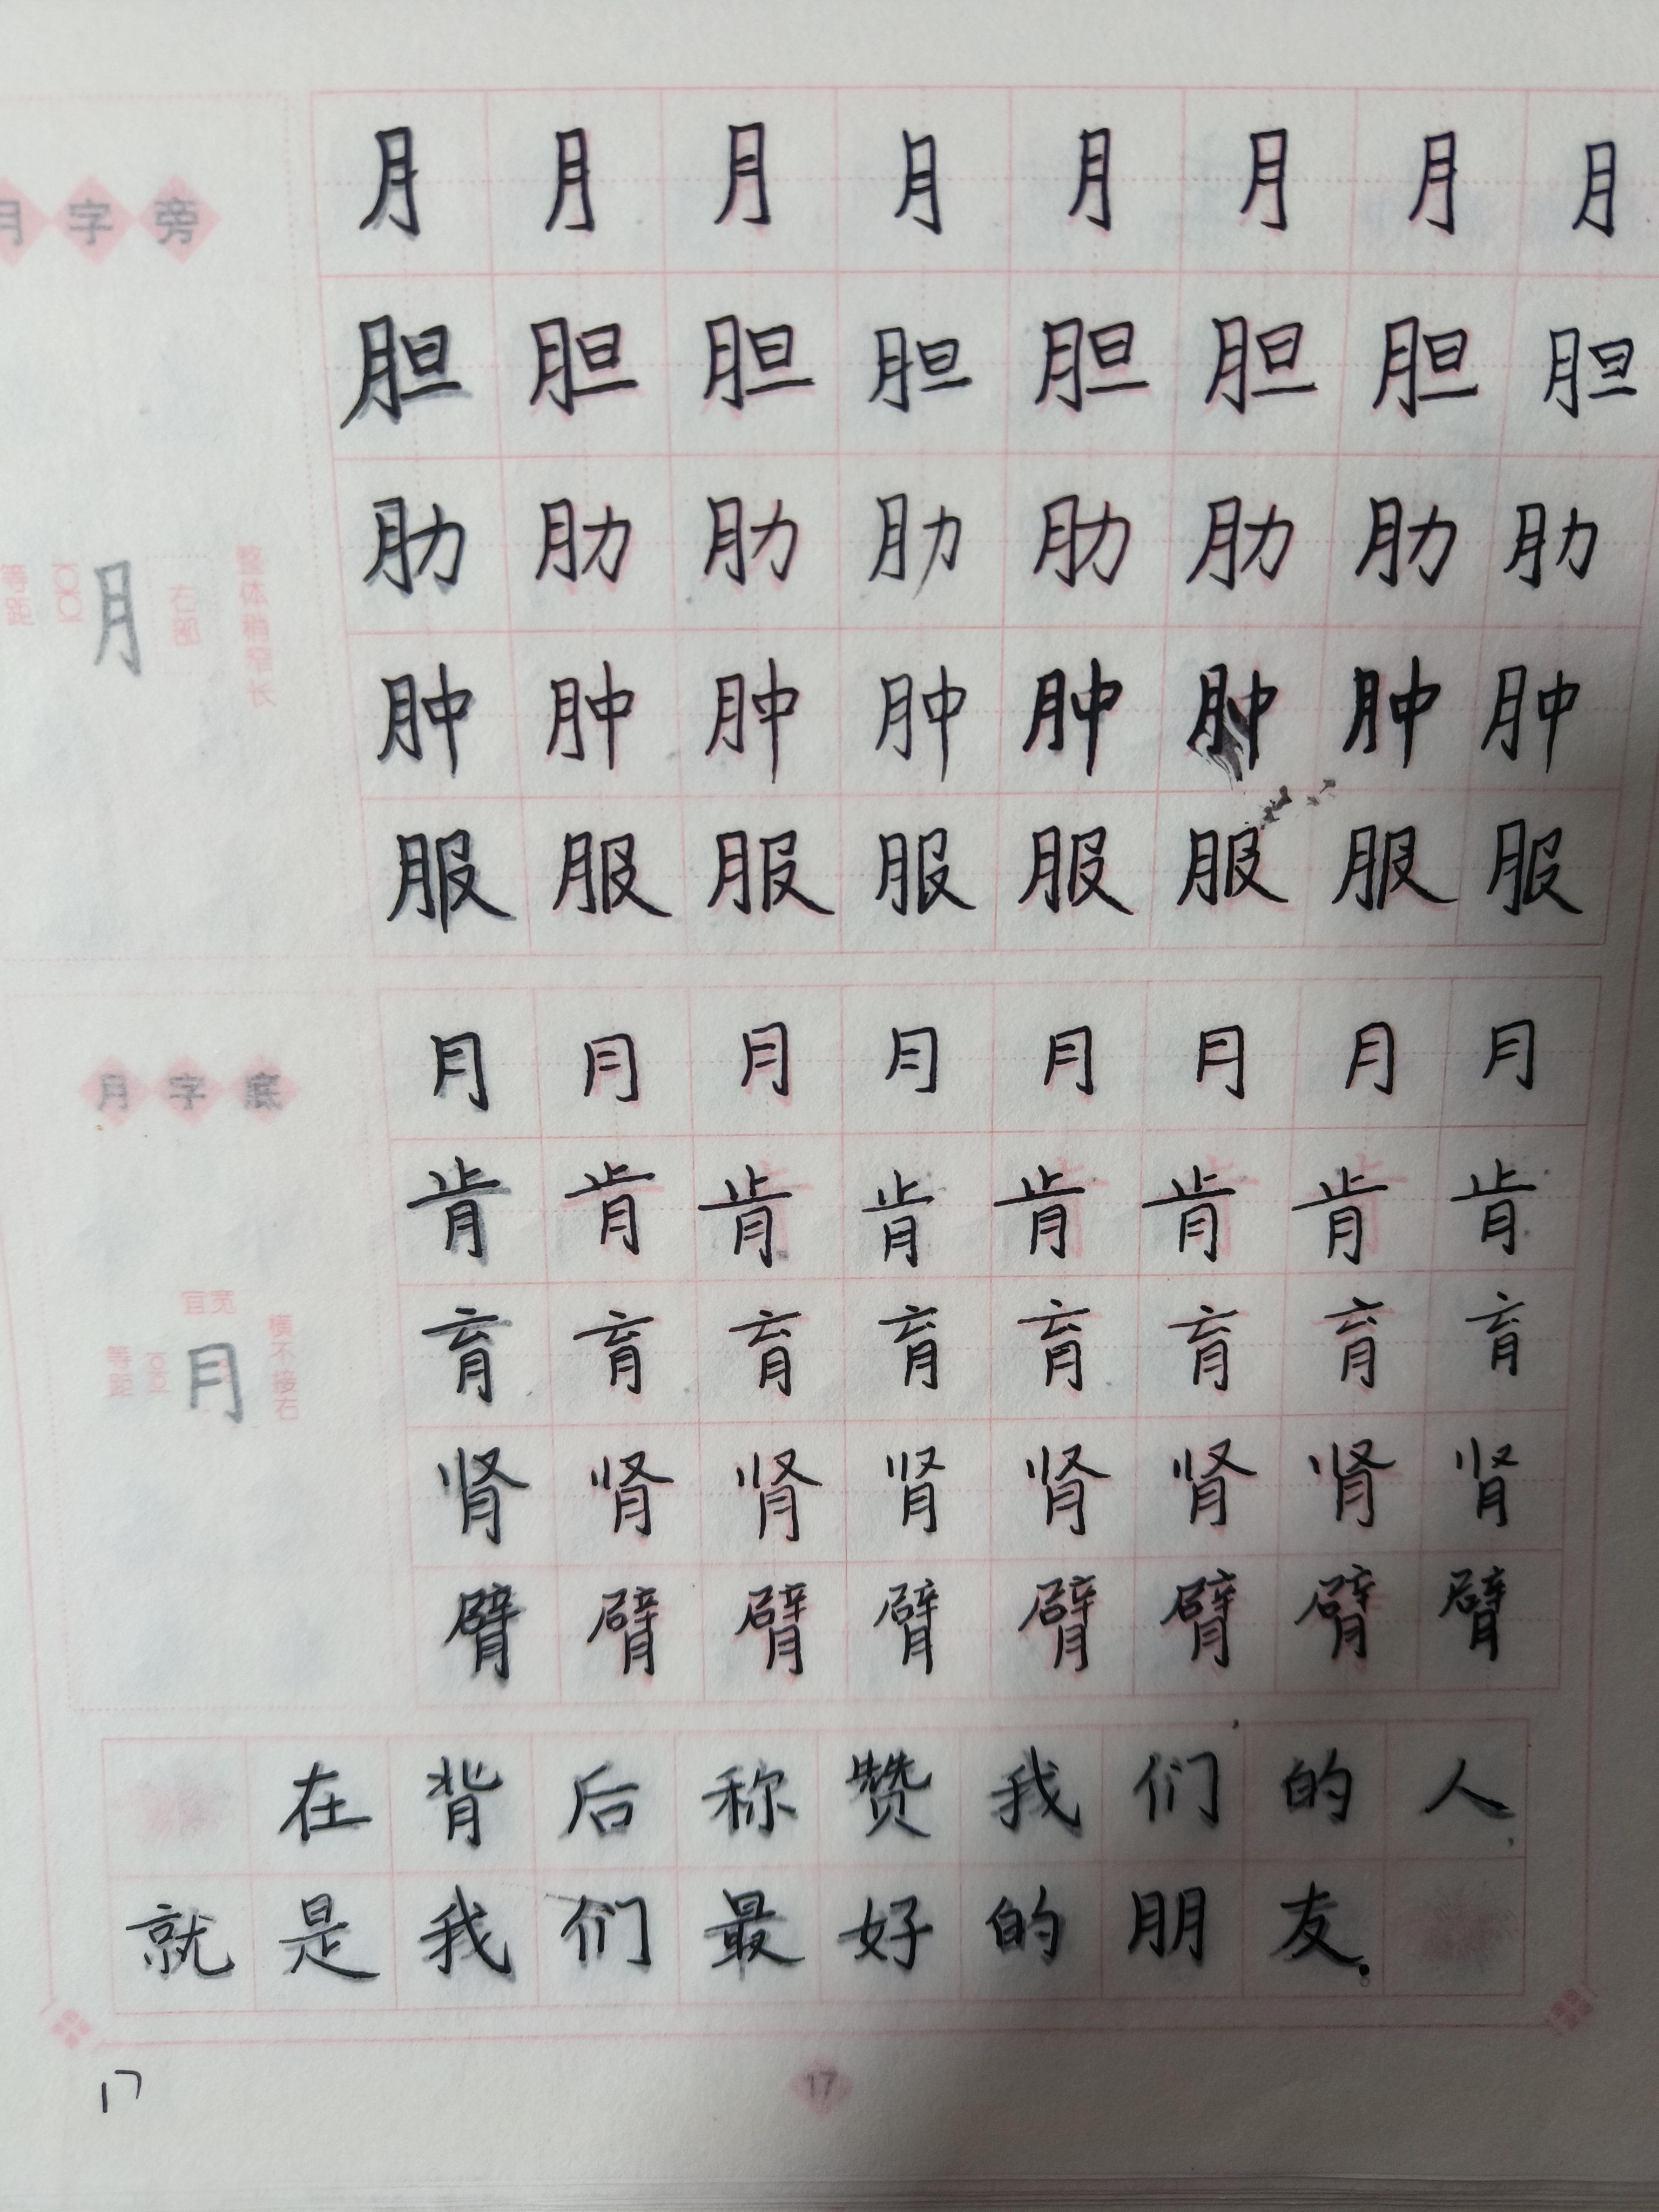 月字旁
月 月 月 月 月 月 月 月
胆 胆 胆 胆 胆 胆 胆 胆
肋 肋 肋 肋 肋 肋 肋 肋
等距
月
右部
整体稍窄长
肿 肿 肿 肿 肿 肿 肿 肿
服 服 服 服 服 服 服 服
月字底
月 月 月 月 月 月 月 月
肯 肯 肯 肯 肯 肯 肯 肯
育 育 育 育 育 育 育 育
宜宽
等距
月
横不接右
肾 肾 肾 肾 肾 肾 肾 肾
臂 臂 臂 臂 臂 臂 臂 臂
在背后称赞我们的人
就是我们最好的朋友。
17
17